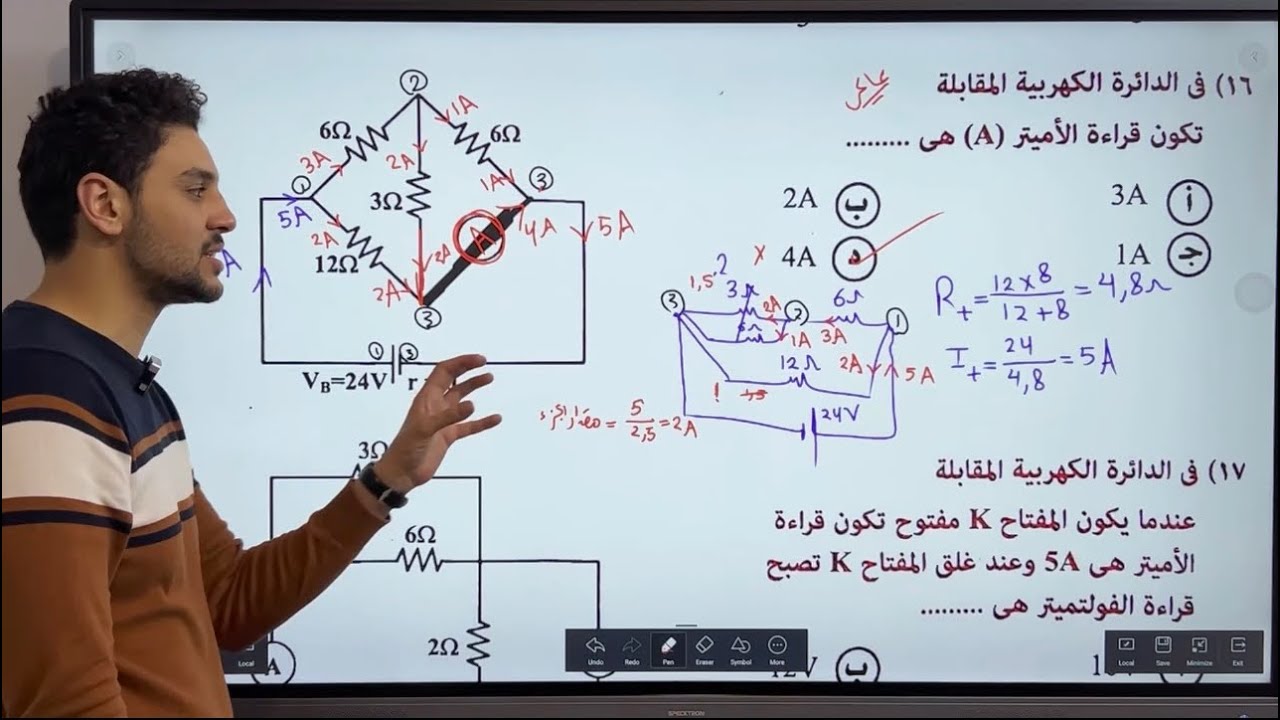 ١٦) فى الدائرة الكهربية المقابلة
تكون قراءة الأميتر (A) هى .........
أ 3A
ب 2A
ج 1A
د 4A
2
6Ω
6Ω
3A
1A
2A
3Ω
1
3
5A
2A
12Ω
2A
2A
A
1A
4A
5A
3
A
1
3
V_B=24V r
R_t = 12×8 / 12+8 = 4,8Ω
I_t = 24 / 4,8 = 5A
3
1,5
2
3Ω
2A
2
6Ω
1
6Ω
1A
3A
12Ω
2A
5A
24V
= 5 / 2,5 = 2A
١٧) فى الدائرة الكهربية المقابلة
عندما يكون المفتاح K مفتوح تكون قراءة
الأميتر هى 5A وعند غلق المفتاح K تصبح
قراءة الفولتميتر هى .........
3Ω
6Ω
2Ω
A
12V ب
Local
Undo Redo Pen Eraser Symbol More
Local Save Minimize Exit
SPECKTRON